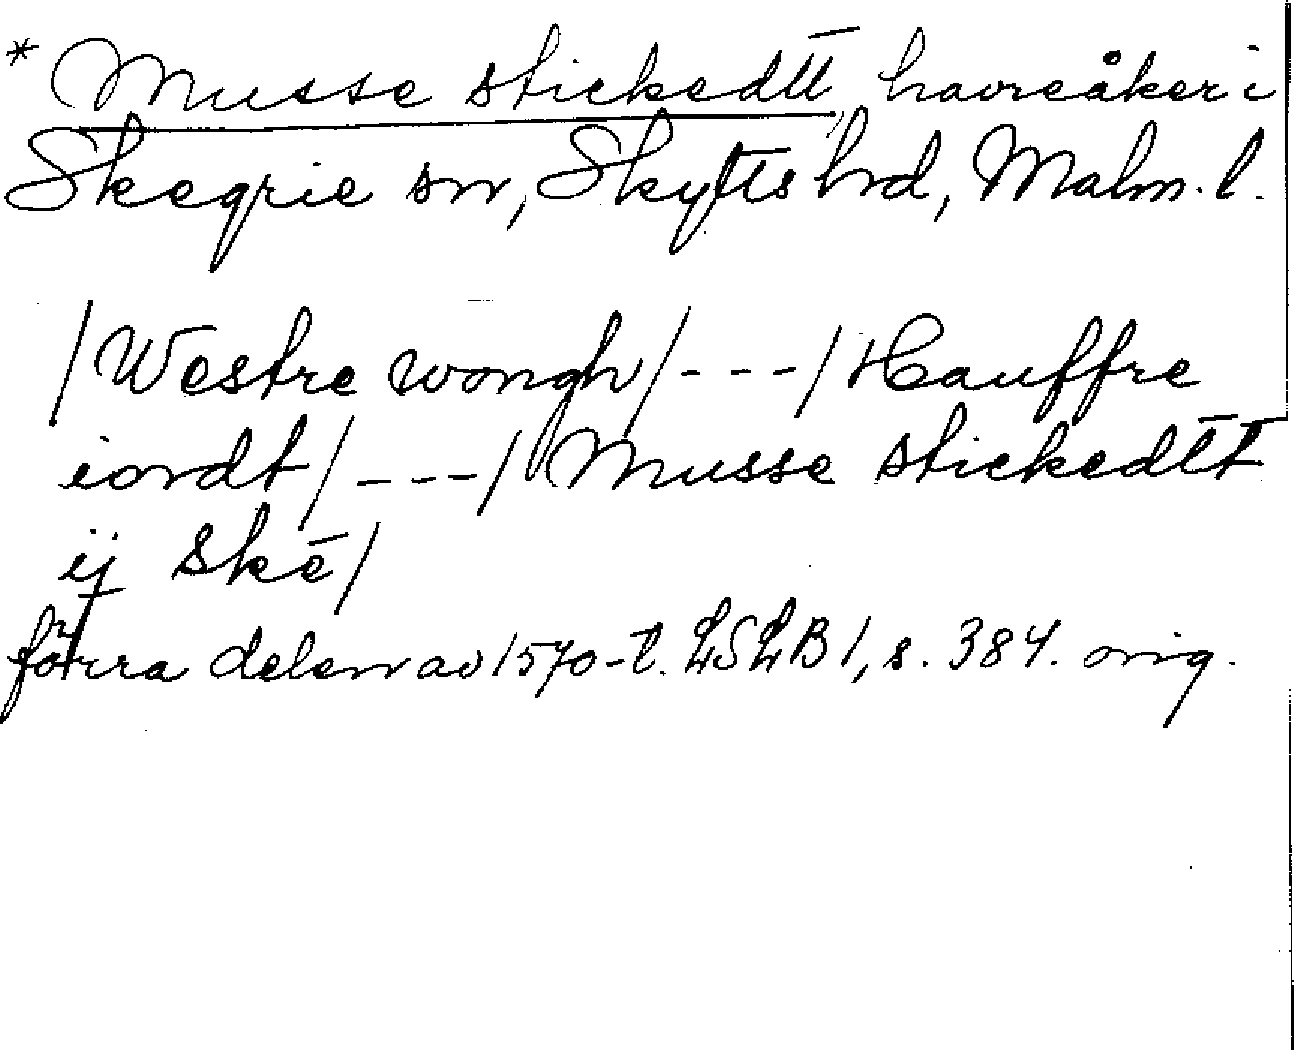 * Musse stickedtt, havreåker i
Skegrie sn, Skytts hrd, Malm. l.
/Westre wongh/---/Hauffre
iordt/---/Musse stickedtt
ij skē/
förra delen av 1570-t. LSLB 1, s. 384. orig.